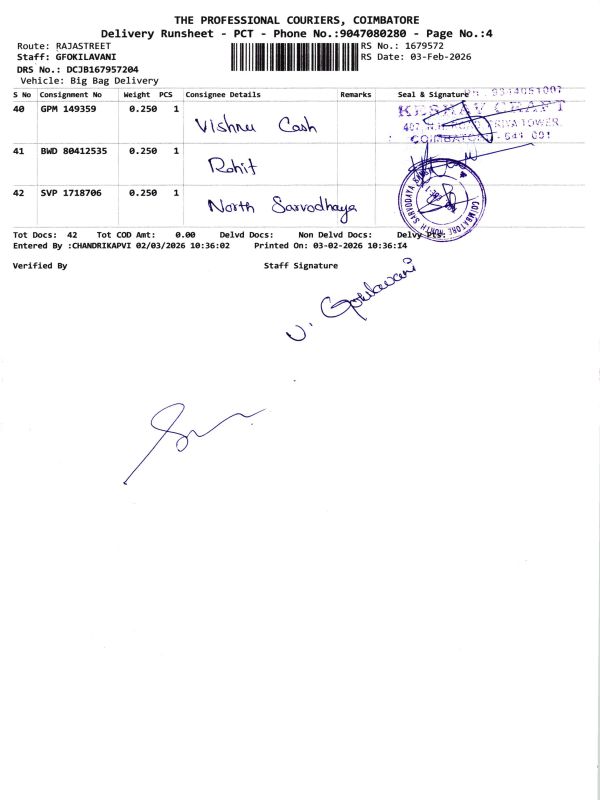 THE PROFESSIONAL COURIERS, COIMBATORE
Delivery Runsheet - PCT - Phone No.:9047080280 - Page No.:4
Route: RAJASTREET RS No.: 1679572
Staff: GFOKILAVANI RS Date: 03-Feb-2026
DRS No.: DCJB167957204
Vehicle: Big Bag Delivery
S No Consignment No Weight PCS Consignee Details Remarks Seal & Signature
40 GPM 149359 0.250 1 Vishnu Cash
KESHAV CRAFT
COIMBATORE - 641 001
41 BWD 80412535 0.250 1 Rohit
42 SVP 1718706 0.250 1 North Sarvodhaya
COIMBATORE NORTH SARVODAYA
Tot Docs: 42 Tot COD Amt: 0.00 Delvd Docs: Non Delvd Docs: Delvy Pts:
Entered By :CHANDRIKAPVI 02/03/2026 10:36:02 Printed On: 03-02-2026 10:36:14
Verified By Staff Signature
V. Gokilavani